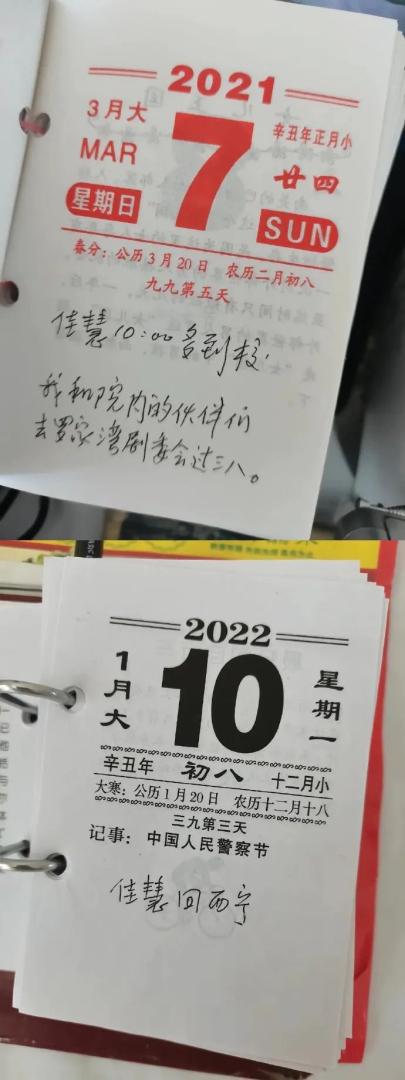 2021
3月大
MAR
星期日
7
辛丑年正月小
廿四
SUN
春分：公历3月20日 农历二月初八
九九第五天
佳慧10:00多到校.
我和院内的伙伴们
去罗家湾剧委会过三八。
2022
1月大
10
星期一
辛丑年 初八 十二月小
大寒：公历1月20日 农历十二月十八
三九第三天
记事：中国人民警察节
佳慧回西宁